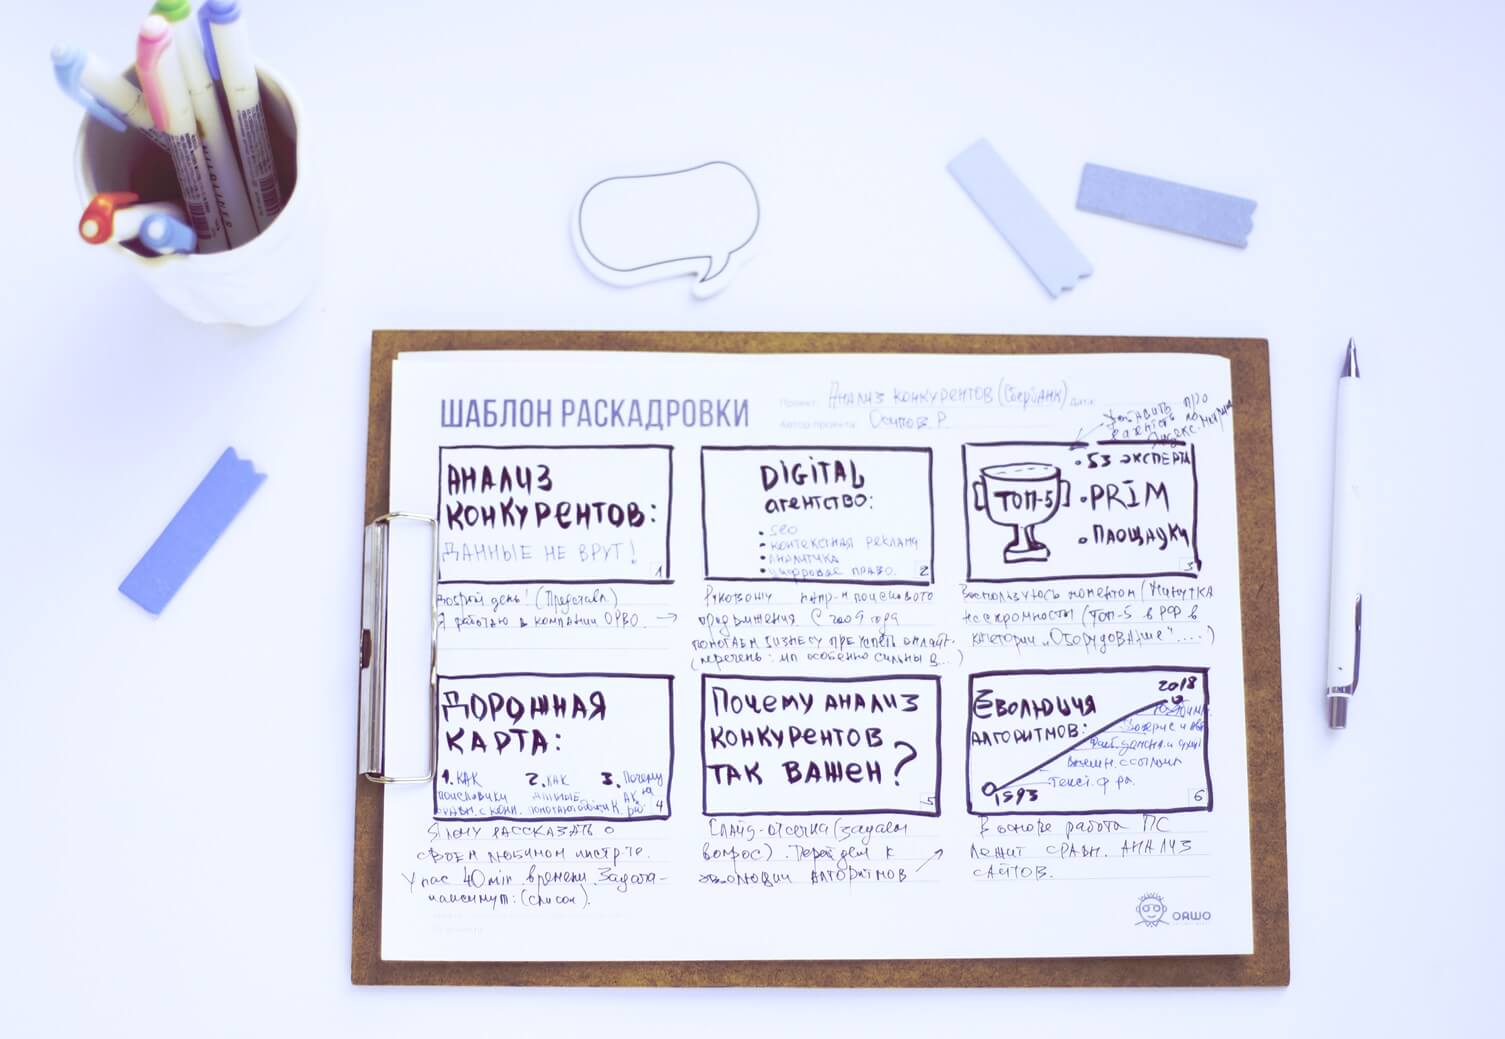 ШАБЛОН РАСКАДРОВКИ
Проект: Анализ конкурентов (Сбербанк) Дата:
Автор проекта: Осипов Р.
АНАЛИЗ
КОНКУРЕНТОВ:
ДАННЫЕ НЕ ВРУТ!
1
Добрый день! (Представл.)
Я работаю в компании ОРВО. →
DIGITAL
агентство:
• SEO
• контекстная реклама
• аналитика
• цифровое право.
2
Руковожу напр-м поискового
продвижения. С 2009 года
помогаем бизнесу преуспеть онлайн.
(перечень: мы особенно сильны в...)
Добавить про
Яндекс.Маркет
ТОП-5
• 53 ЭКСПЕРТА
• PRIM
• ПЛОЩАДКИ
3
Воспользуюсь моментом (Минутка
нескромности (ТОП-5 в РФ в
категории „Оборудование"....)
ДОРОЖНАЯ
КАРТА:
1. КАК
поисковики
2. КАК
данные
3. Почему
4
Я хочу рассказать о
своем любимом инстр-те.
У нас 40 min времени. Задача-
максимум: (список).
Почему анализ
конкурентов
так важен?
5
Слайд-отсечка (задаем
вопрос). Перейдем к
эволюции алгоритмов
Эволюция
алгоритмов:
2018
Текст. ф-ра.
1993
6
В основе работа ПС
лежит сравн. анализ
сайтов.